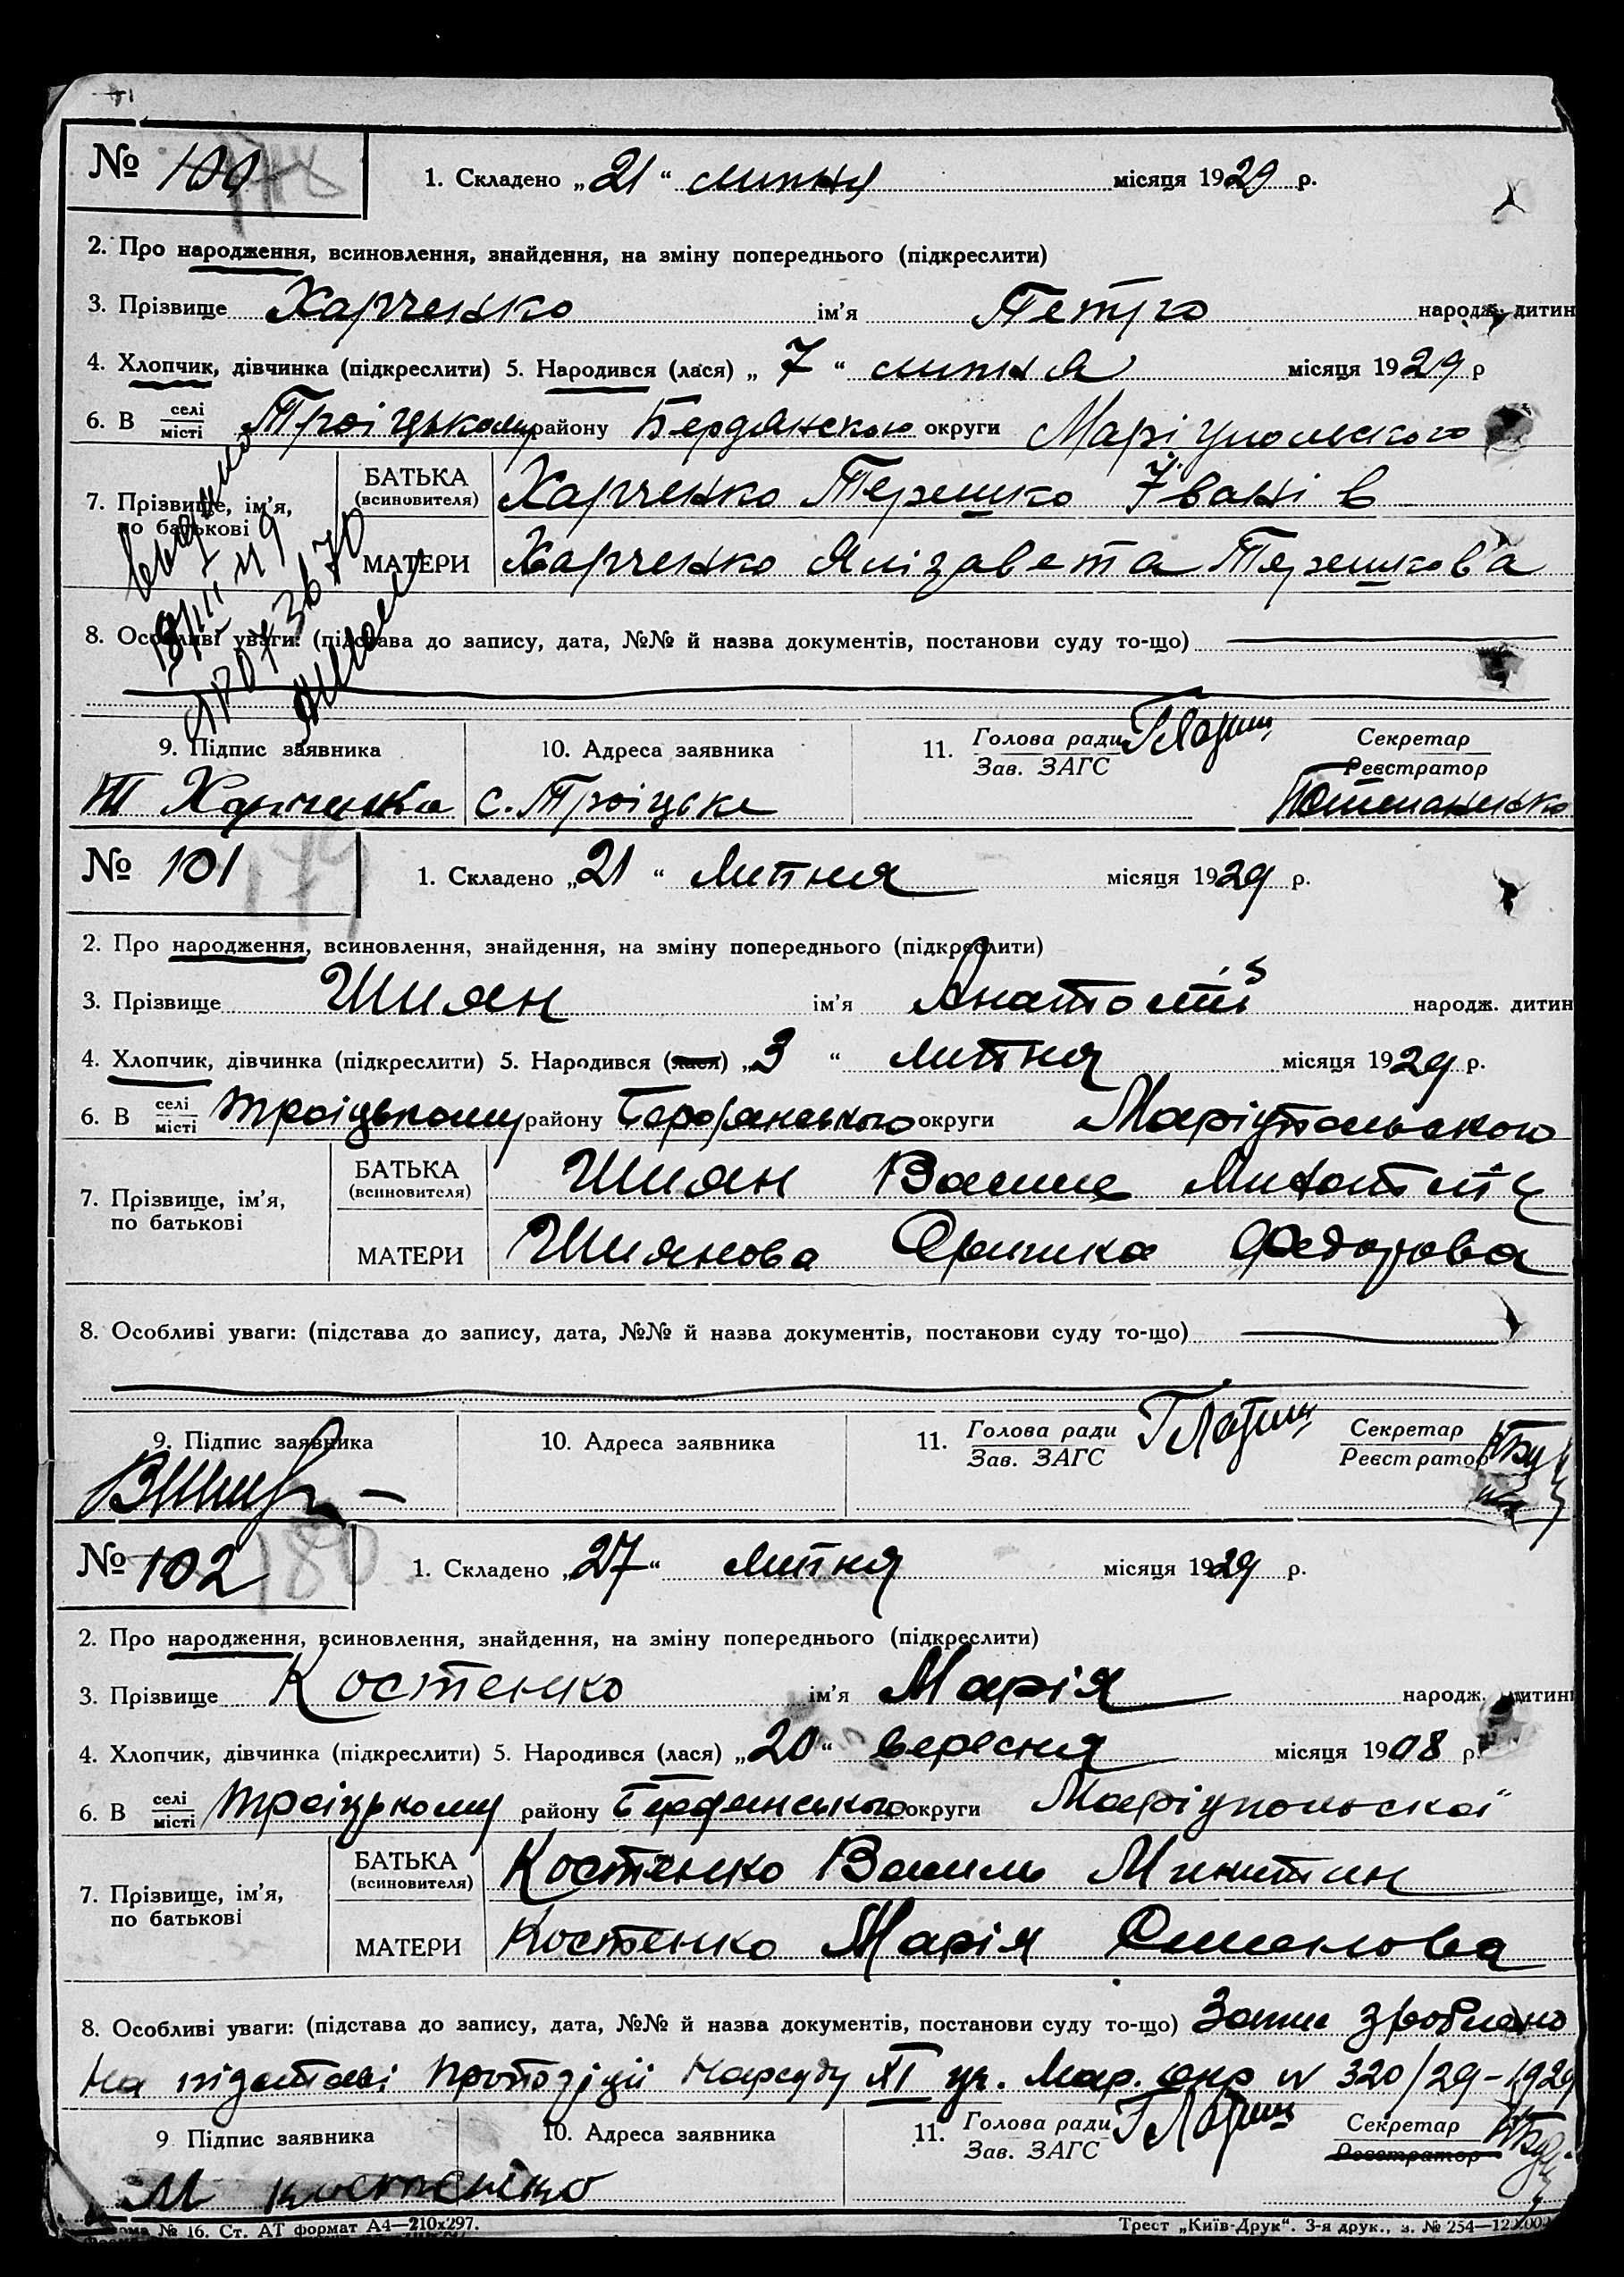 № 100 178 1. Складено „21“ липня місяця 1929 р.
2. Про народження, всиновлення, знайдення, на зміну попереднього (підкреслити)
3. Прізвище Харченко ім’я Петро народж. дитин
4. Хлопчик, дівчинка (підкреслити) 5. Народився (лася) „7“ липня місяця 1929 р
6. В селі місті Троіцькому району Бердянского округи Маріупольского
7. Прізвище, ім’я, по батькові
БАТЬКА (всиновителя) Харченко Терешко Іванів
МАТЕРИ ХарченкоЯлізавета Терешкова
8. Особливі уваги: (підстава до запису, дата, №№ й назва документів, постанови суду то-що)
9. Підпис заявника 10. Адреса заявника 11. Голова ради Зав. ЗАГС Секретар Реєстратор
Т Харченко с. Троіцьке
№ 101 179 1. Складено „21“ Липня місяця 1929 р.
2. Про народження, всиновлення, знайдення, на зміну попереднього (підкреслити)
3. Прізвище Шиян ім’я Анатолій народж. дитин
4. Хлопчик, дівчинка (підкреслити) 5. Народився (лася) „3“ липня місяця 1929 р.
6. В селі місті Троіцькому району Бердянського округи Маріупольского
7. Прізвище, ім’я, по батькові
БАТЬКА (всиновителя) Шиян Василь
МАТЕРИ Шиянова Оришка Федорова
8. Особливі уваги: (підстава до запису, дата, №№ й назва документів, постанови суду то-що)
9. Підпис заявника 10. Адреса заявника 11. Голова ради Зав. ЗАГС Секретар Реєстратор
№ 102 180 1. Складено „27“ липня місяця 1929 р.
2. Про народження, всиновлення, знайдення, на зміну попереднього (підкреслити)
3. Прізвище Костенко ім’я Марія народж. дитини
4. Хлопчик, дівчинка (підкреслити) 5. Народився (лася) „20“ вересня місяця 1908 р.
6. В селі місті Троіцькому району Бердянського округи Маріупольскаї
7. Прізвище, ім’я, по батькові
БАТЬКА (всиновителя) Костенко Василь Микитин
МАТЕРИ Костенко Марія Семенова
8. Особливі уваги: (підстава до запису, дата, №№ й назва документів, постанови суду то-що) Запис зроблено
на підставі пропозіціі Нарсуду XI уч. Мар. окр N 320/29-1929
9 Підпис заявника 10. Адреса заявника 11. Голова ради Зав. ЗАГС Секретар Реєстратор
М костенко
№ 16. Ст. АТ формат А4—210х297. Трест „Київ-Друк“. 3-я друк., з. № 254—12